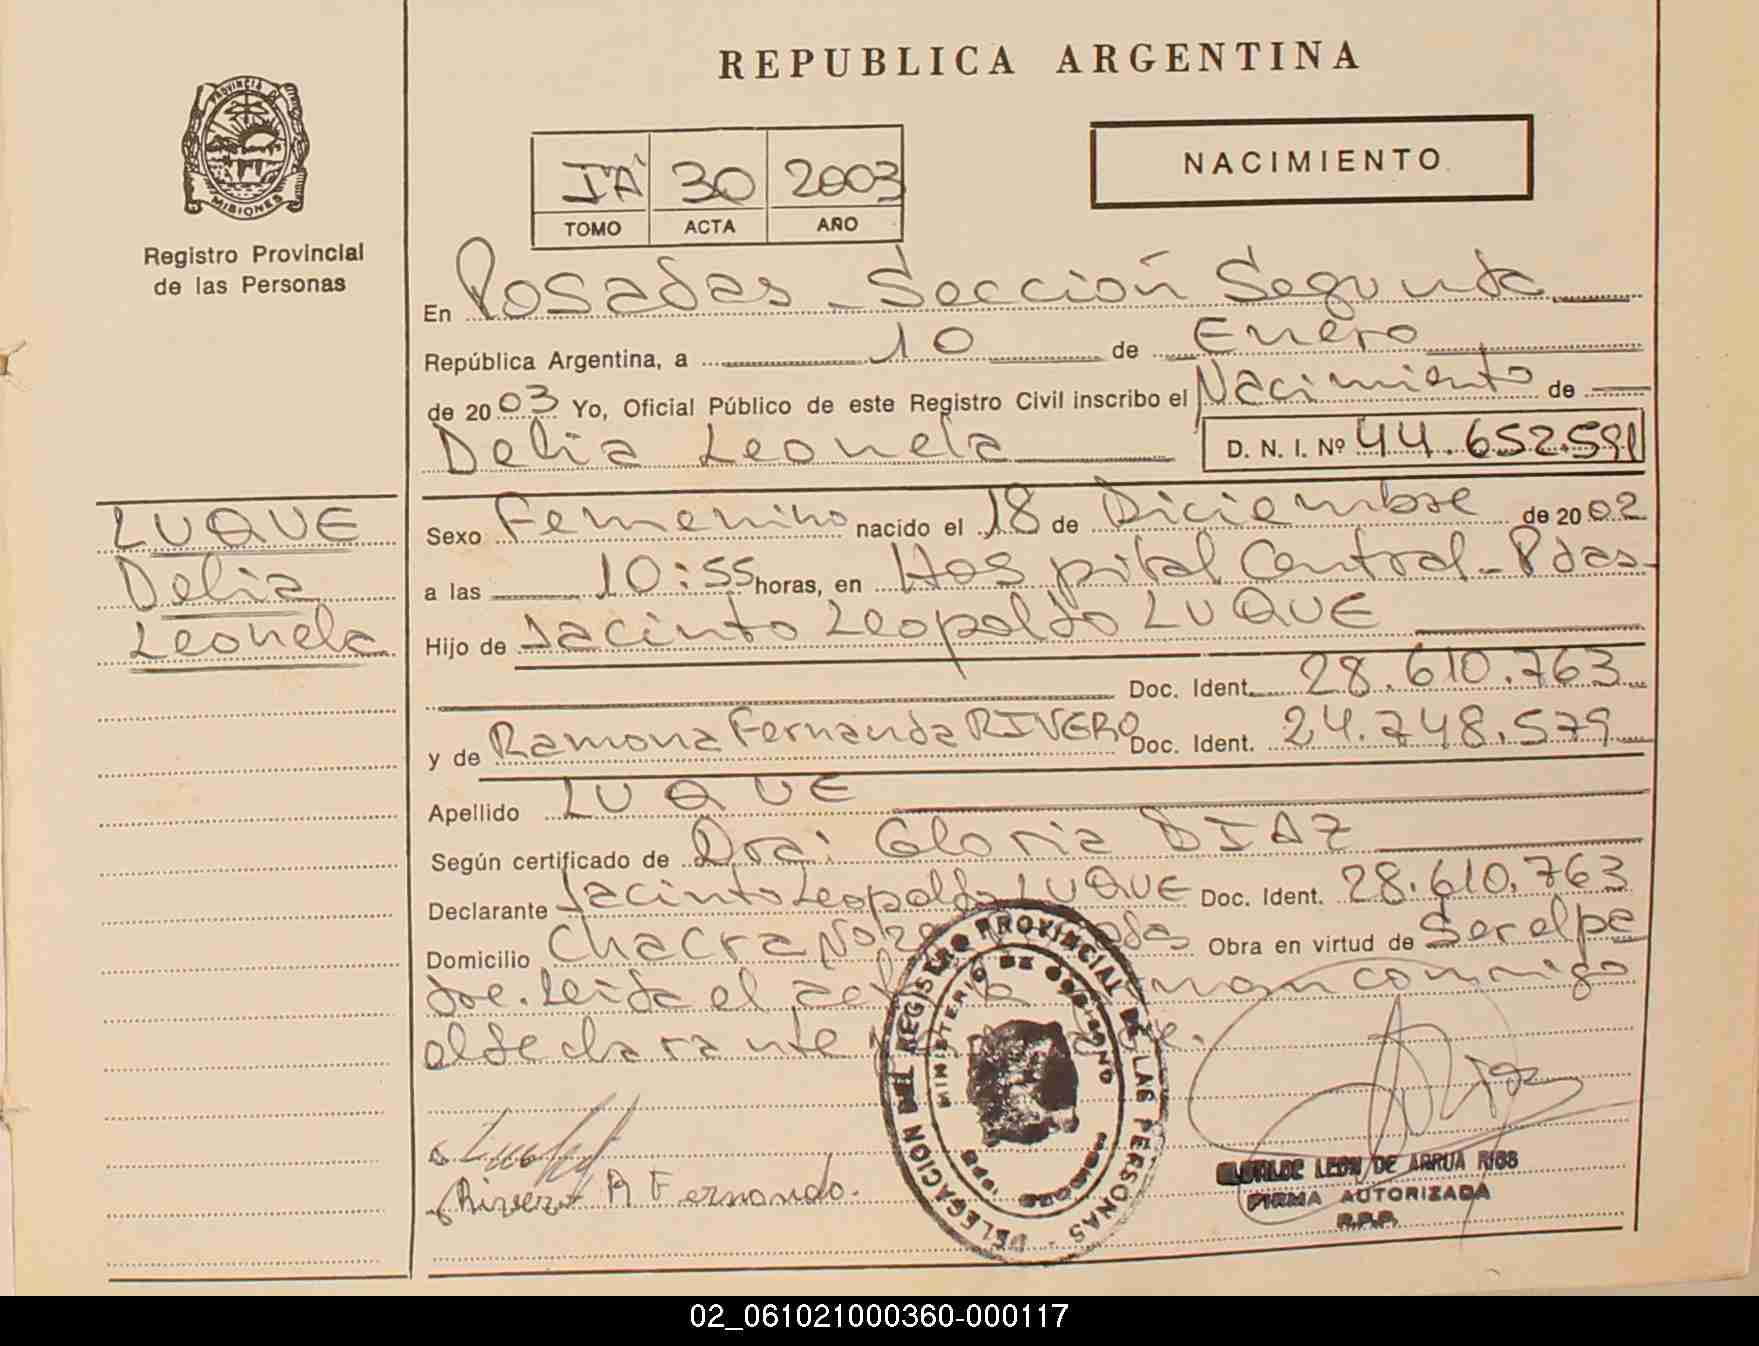 REPUBLICA ARGENTINA
PROVINCIA DE
MISIONES
Registro Provincial
de las Personas
NACIMIENTO
IA 30 2003
TOMO ACTA AÑO
En Posadas - Sección Segunda
República Argentina, a 10 de Enero
de 2003 Yo, Oficial Público de este Registro Civil inscribo el Nacimiento de
Delia Leonela D. N. I. Nº 44.652.591
LUQUE
Delia
Leonela
Sexo Femenino nacido el 18 de Diciembre de 2002
a las 10:55 horas, en Hospital Central - Pdas-
Hijo de Jacinto Leopoldo LUQUE
Doc. Ident. 28.610.763
y de Ramona Fernanda RIVERO Doc. Ident. 24.748.579
Apellido LUQUE
Según certificado de Dra: Gloria DIAZ
Declarante Jacinto Leopoldo LUQUE Doc. Ident. 28.610.763
Domicilio Chacra Nº Obra en virtud de Ser el pa
dre. Leída el acta la firman conmigo
el declarante
Rivero R Fernanda.
DELEGACION DEL REGISTRO PROVINCIAL DE LAS PERSONAS
MINISTERIO DE GOBIERNO
LEON DE ARRUA RIOS
FIRMA AUTORIZADA
R.P.P.
02_061021000360-000117